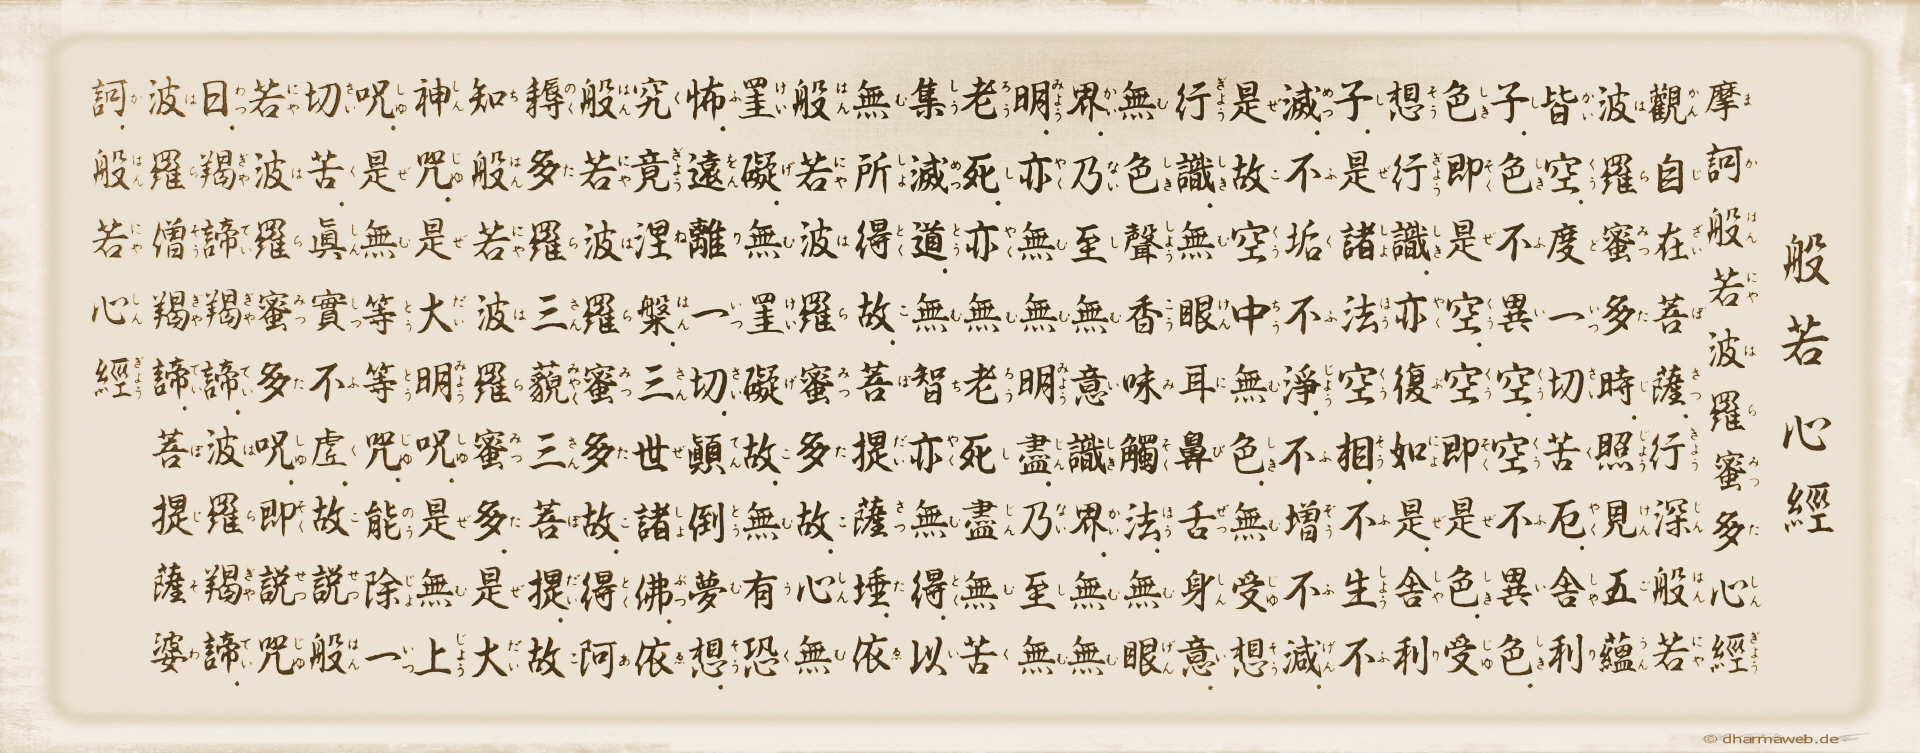 般若心經
摩訶般若波羅蜜多心經
觀自在菩薩行深般若
波羅蜜多時照見五蘊
皆空度一切苦厄舎利
子色不異空空不異色
色即是空空即是色受
想行識亦復如是舎利
子是諸法空相不生不
滅不垢不淨不増不減
是故空中無色無受想
行識無眼耳鼻舌身意
無色聲香味觸法無眼
界乃至無意識界無無
明亦無無明盡乃至無
老死亦無老死盡無苦
集滅道無智亦無得以
無所得故菩提薩埵依
般若波羅蜜多故心無
罣礙無罣礙故無有恐
怖遠離一切顚倒夢想
究竟涅槃三世諸佛依
般若波羅蜜多故得阿
耨多羅三藐三菩提故
知般若波羅蜜多是大
神咒是大明呪是無上
呪是無等等咒能除一
切苦眞實不虚故説般
若波羅蜜多呪即説咒
曰羯諦羯諦波羅羯諦
波羅僧羯諦菩提薩婆
訶般若心經
© dharmaweb.de